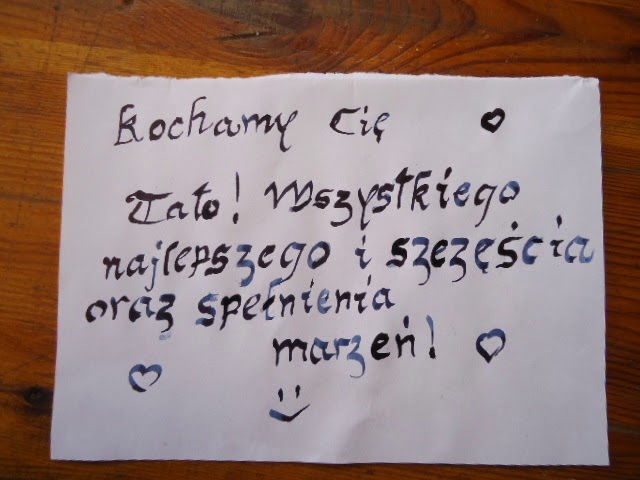 Kochamy Cię
Tato! Wszystkiego
najlepszego i szczęścia
oraz spełnienia
marzeń!